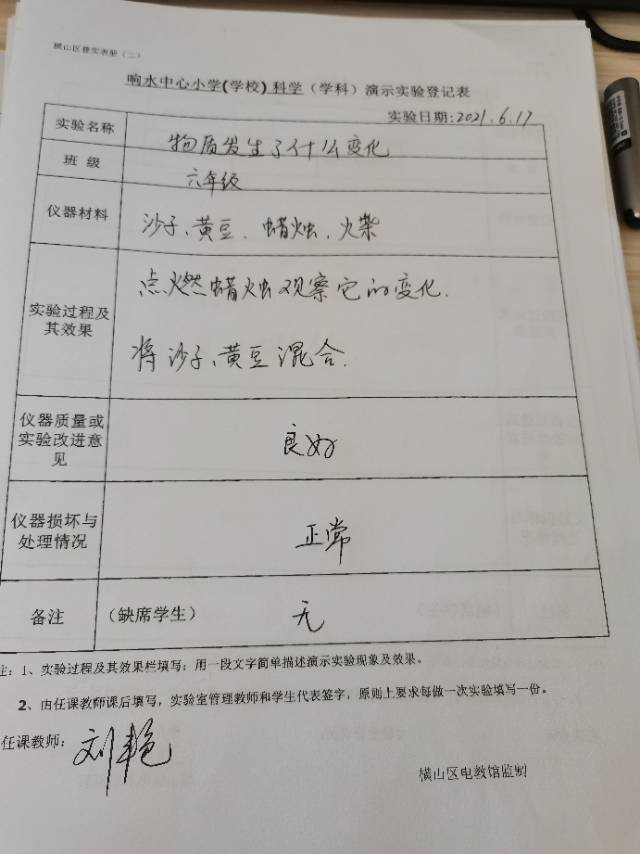 横山区普实表册（二）
响水中心小学(学校)科学（学科）演示实验登记表
实验日期:2021.6.17
实验名称 物质发生了什么变化
班 级 六年级
仪器材料 沙子、黄豆、蜡烛、火柴
点燃蜡烛观察它的变化.
实验过程及
其效果
将沙子、黄豆混合.
仪器质量或
实验改进意
见
良好
仪器损坏与
处理情况
正常
备注 （缺席学生） 无
注：1、实验过程及其效果栏填写：用一段文字简单描述演示实验现象及效果。
2、由任课教师课后填写，实验室管理教师和学生代表签字，原则上要求每做一次实验填写一份。
任课教师：刘艳
横山区电教馆监制